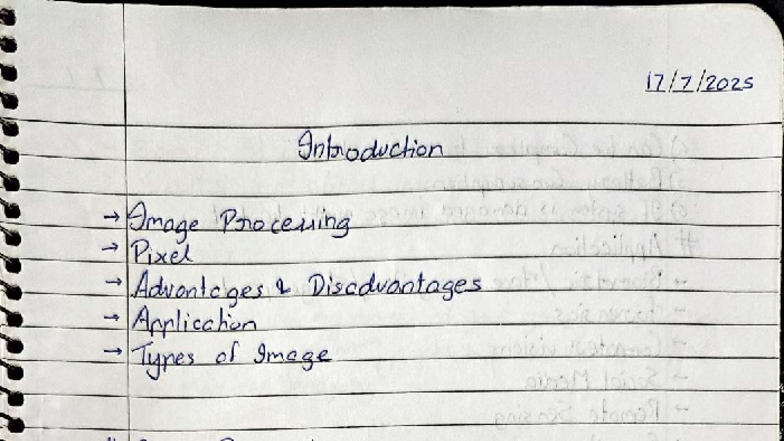 17/7/2025
Introduction
→ Image Processing
→ Pixel
→ Advantages & Disadvantages
→ Application
→ Types of Image